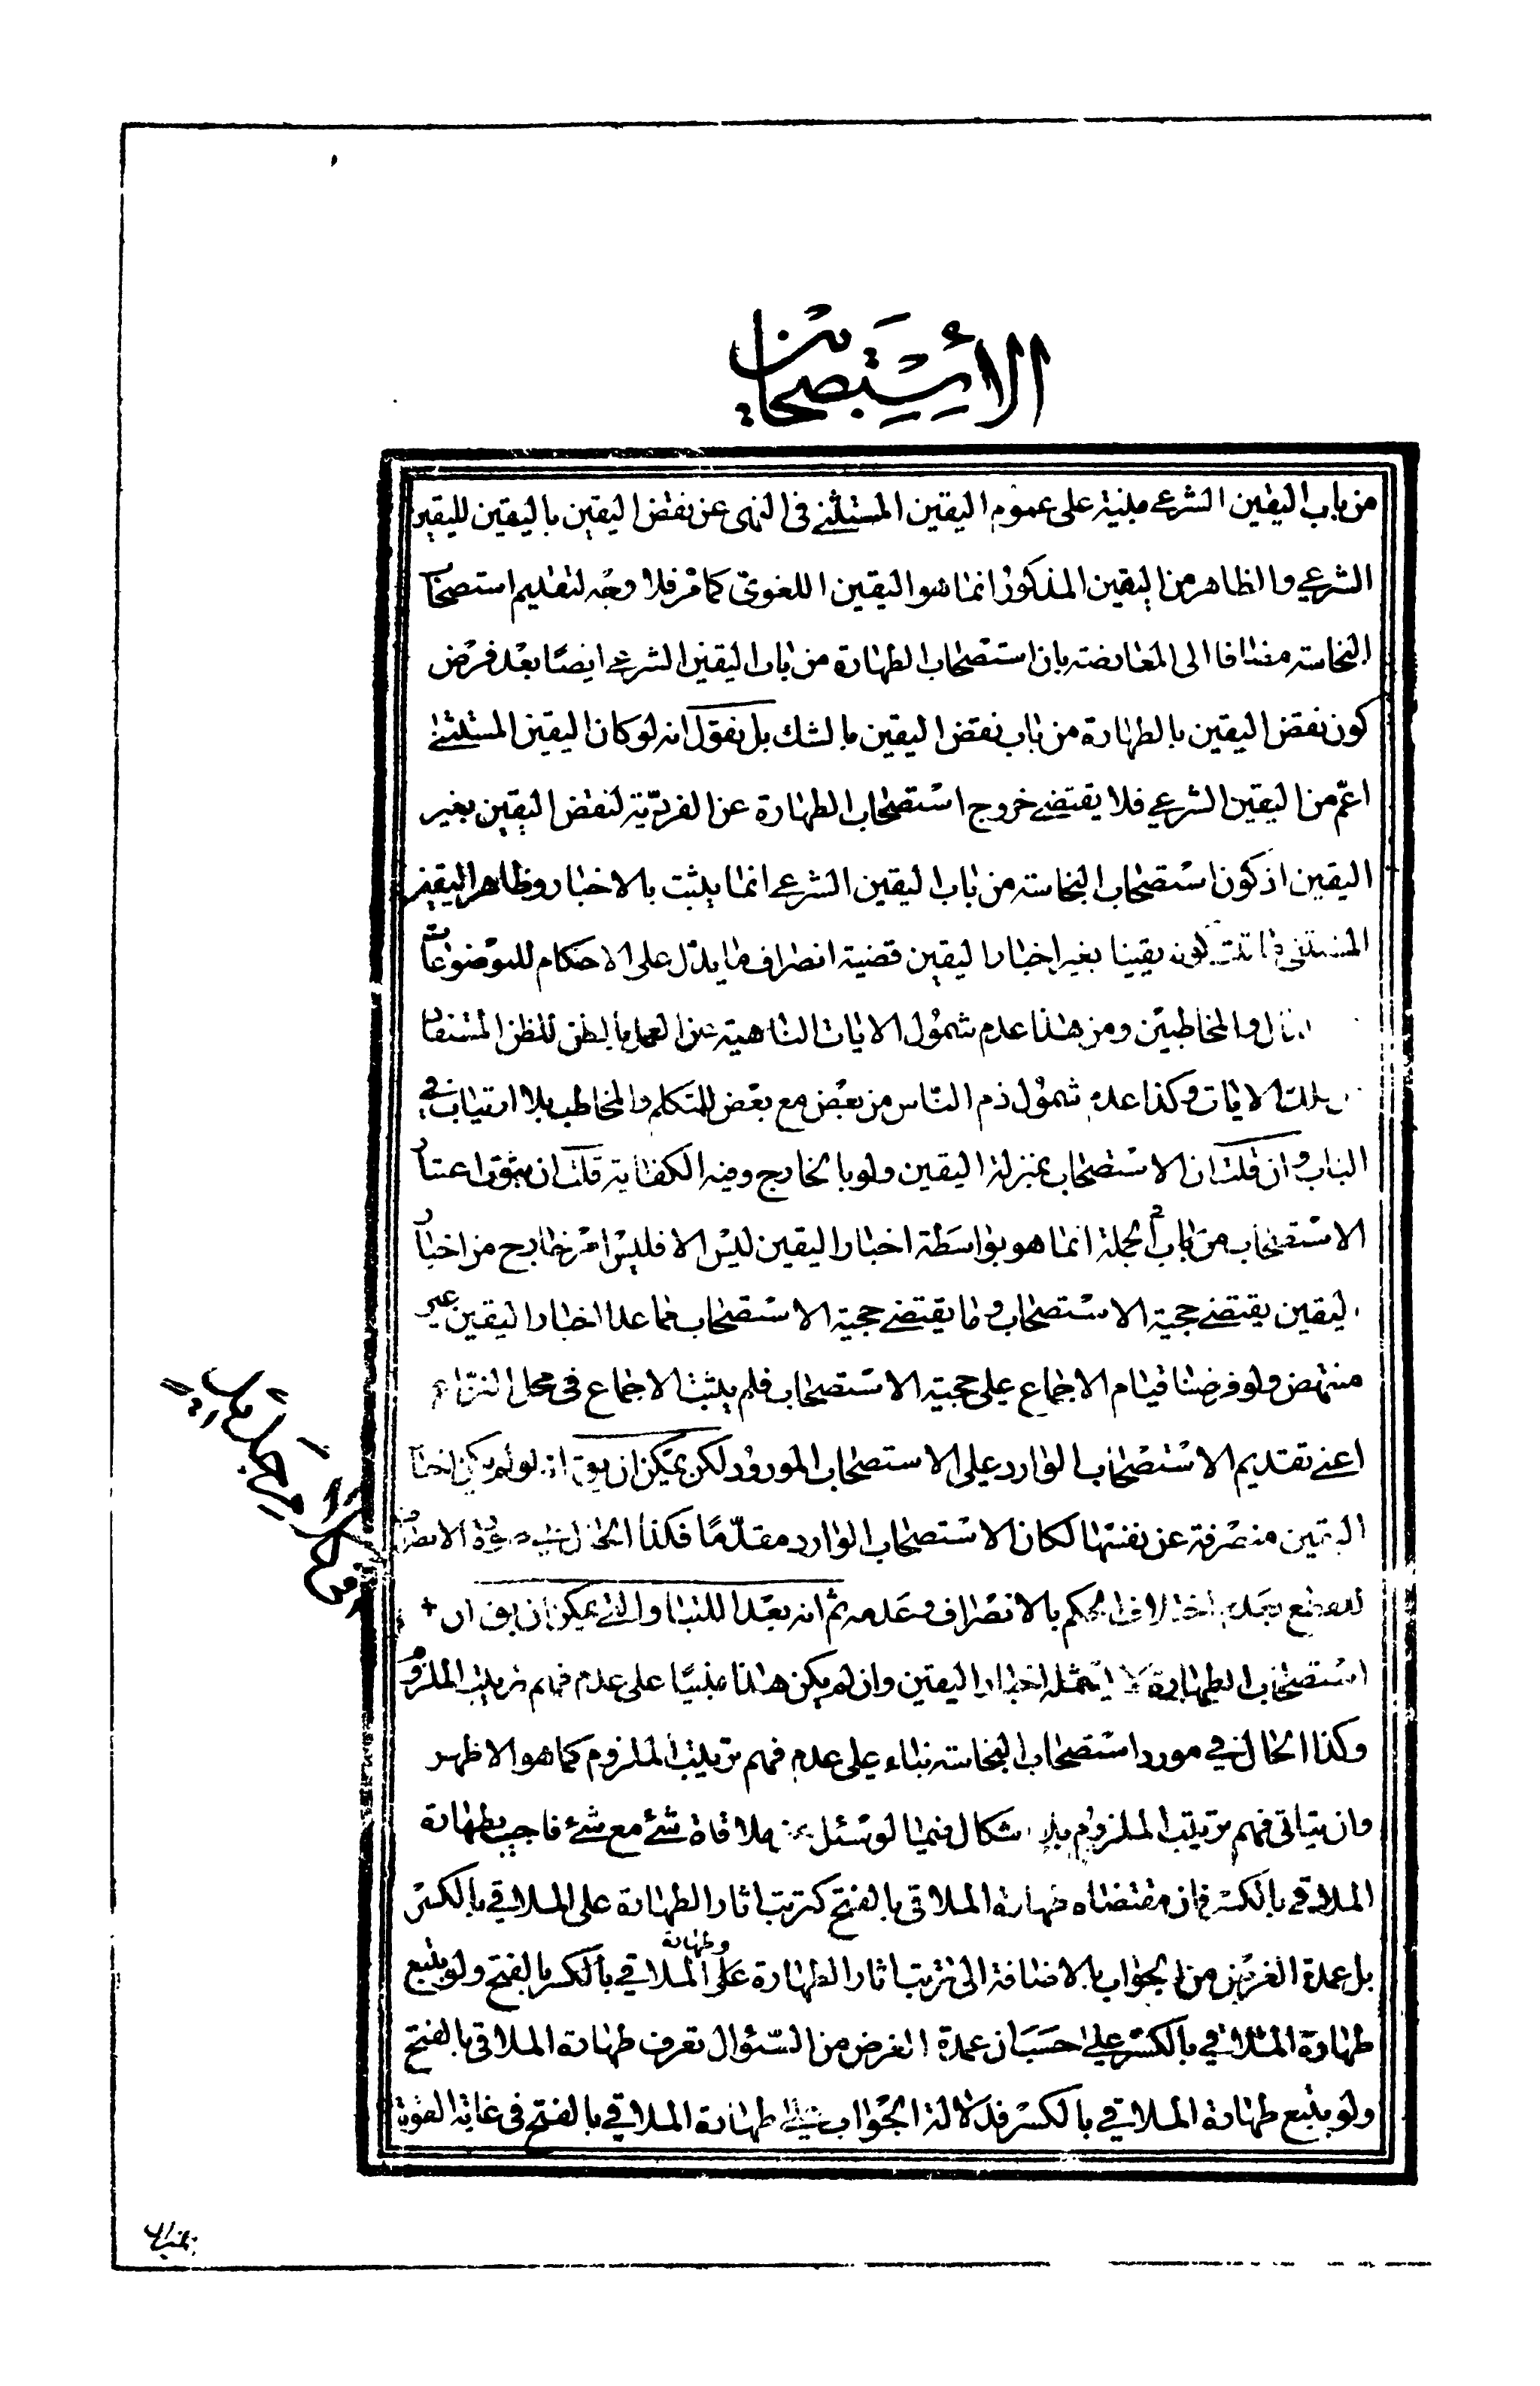 الأستصحاب
من باب اليقين الشرعي مبنية على عموم اليقين المستثنى في النهى عن نقض اليقين باليقين لليقين
الشرعي والظاهر من اليقين المذكور انما هو اليقين اللغوى كما مر فلا وجه لتقديم استصحاب
النجاسة مضافا الى المعارضة بان استصحاب الطهارة من باب اليقين الشرعي ايضا بعد فرض
كون نقض اليقين بالطهارة من باب نقض اليقين بالشك بل نقول انه لو كان اليقين المستثنى
اعم من اليقين الشرعي فلا يقتضي خروج استصحاب الطهارة عن الفردية لنقض اليقين بغير
اليقين اذ كون استصحاب النجاسة من باب اليقين الشرعي انما يثبت بالاخبار وظاهر اليقين
المستثنى كونه يقينا بغير اخبار اليقين قضية انصراف ما يدل على الاحكام للموضوعات
والمخاطبين ومن هذا عدم شمول الايات الناهية عن العمل بالظن للظن المستفاد
الايات وكذا عدم شمول ذم الناس من بعض مع بعض للمتكلم والمخاطب بلا ارتياب في
الباب وان قلت ان الاستصحاب بمنزلة اليقين ولو بالخارج وفيه الكفاية قلت ان ثبوت اعتبار
الاستصحاب من باب الجملة انما هو بواسطة اخبار اليقين ليس الا فليس امر خارج من اخبار
اليقين يقتضي حجية الاستصحاب وما يقتضي حجية الاستصحاب فما عدا اخبار اليقين غير
منتهض ولو فرضنا قيام الاجماع على حجية الاستصحاب فلم يثبت الاجماع في محل النزاع
اعني تقديم الاستصحاب الوارد على الاستصحاب المورود لكن يمكن ان يق انه لو لم يكن اخبار
اليقين منصرفة عن نفسها لكان الاستصحاب الوارد مقدما فكذا الحال في صورة الانصراف
للقطع بعدم اختلاف الحكم بالانصراف وعدمه ثم انه بعد اللتيا والتي يمكن ان يق ان
استصحاب الطهارة لا يشمله اخبار اليقين وان لم يكن هذا مبنيا على عدم فهم ترتيب الملزوم
وكذا الحال في مورد استصحاب النجاسة بناء على عدم فهم ترتيب الملزوم كما هو الاظهر
وان يتاتى فهم ترتيب الملزوم بلا اشكال فيما لو سئل عن ملاقاة شئ مع شئ فاجيب بطهارة
الملاقي بالكسر فان مقتضاه طهارة الملاقى بالفتح كترتب اثار الطهارة على الملاقي بالكسر
بل عمدة الغرض من الجواب بالاضافة الى ترتب اثار الطهارة على وطهارة الملاقي بالكسر بالفتح ولو بتبع
طهارة الملاقي بالكسر على حسبان عمدة الغرض من السؤال تعرف طهارة الملاقى بالفتح
ولو بتبع طهارة الملاقي بالكسر فدلالة الجواب على طهارة الملاقي بالفتح في غاية القوة